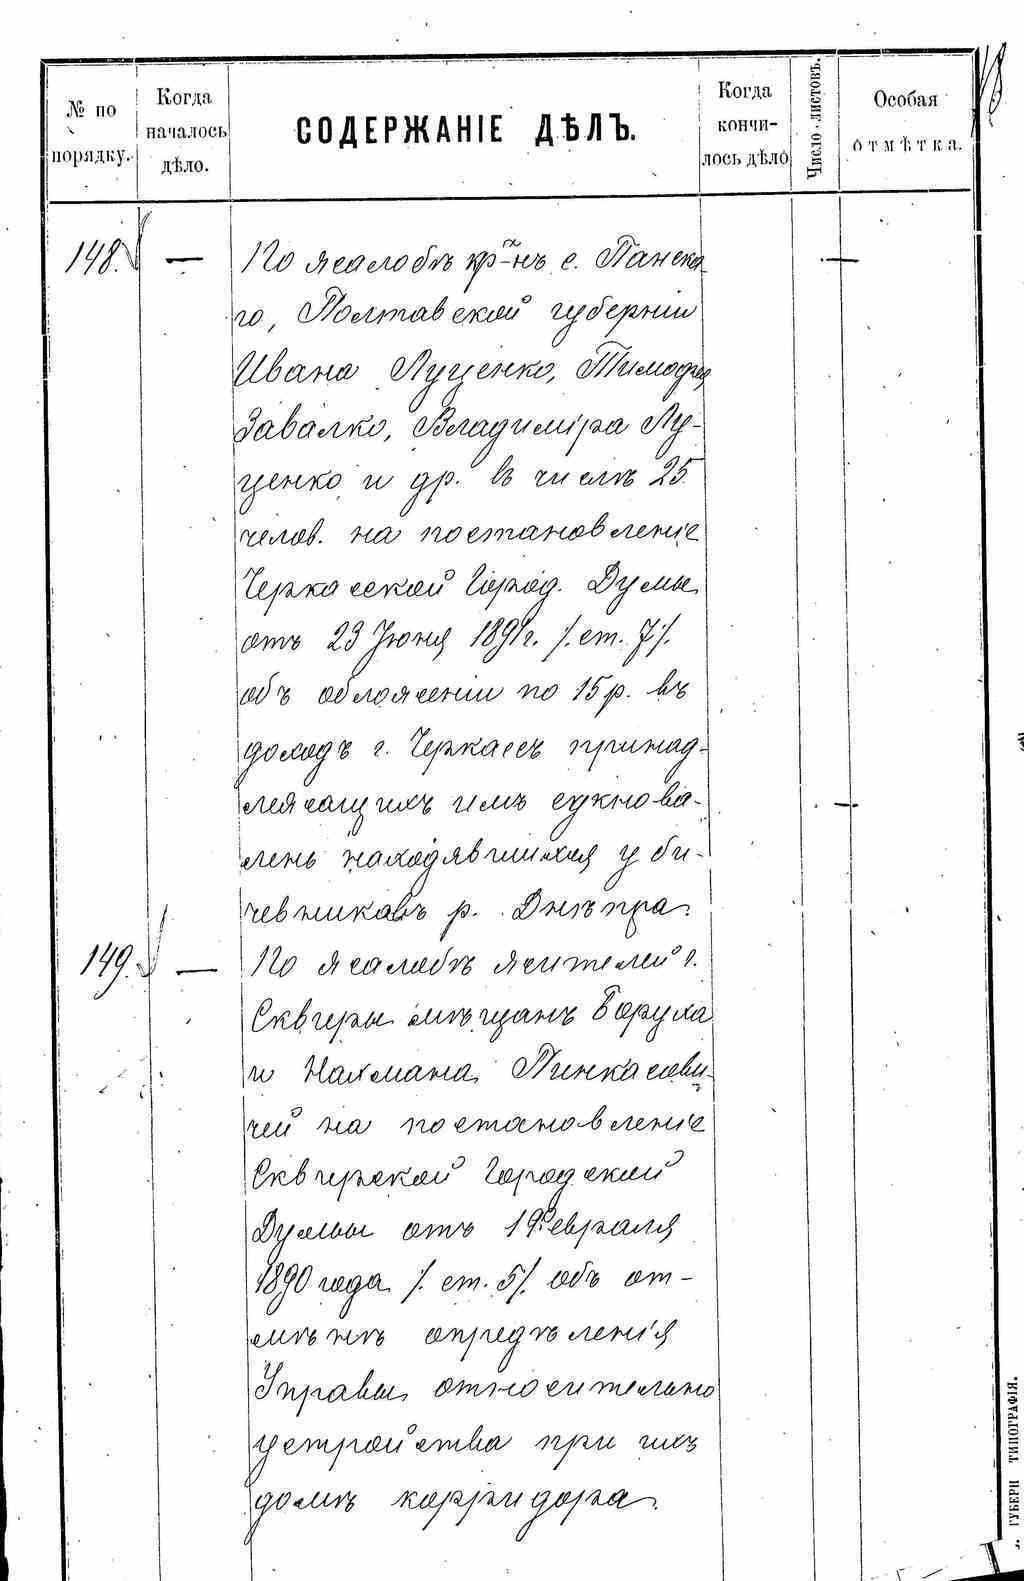 № по порядку.
Когда началось дѣло.
СОДЕРЖАНІЕ ДѢЛЪ.
Когда кончилось дѣло
Число листовъ.
Особая отмѣтка.
148. — По жалобѣ кр-нъ с. Панска-
го, Полтавской губерніи
Ивана Луценко, Тимофея
Завалко, Владиміра Лу-
ценко и др. въ числѣ 25
челов. на постановленіе
Черкасской Город. Думы
отъ 23 Іюня 1891 г. /. ст. 7/.
объ обложеніи по 15 р. въ
доходъ г. Черкассъ принад-
лежащихъ имъ сукнова-
лень находявшихся у би-
чевниковъ р. Днѣпра.
149. — По жалобѣ жителей г.
Сквиры мѣщанъ Боруха
и Нахмана Пинкасови-
чей на постановленіе
Сквирской Городской
Думы отъ 19 Февраля
1890 года /. ст. 5/. объ от-
мѣнѣ опредѣленія
Управы относительно
устройства при ихъ
домѣ корридора.
ГУБЕРН ТИПОГРАФІЯ.